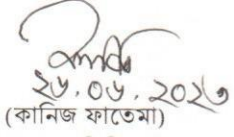 ২৬.০৬.২০২৩
(কানিজ ফাতেমা)